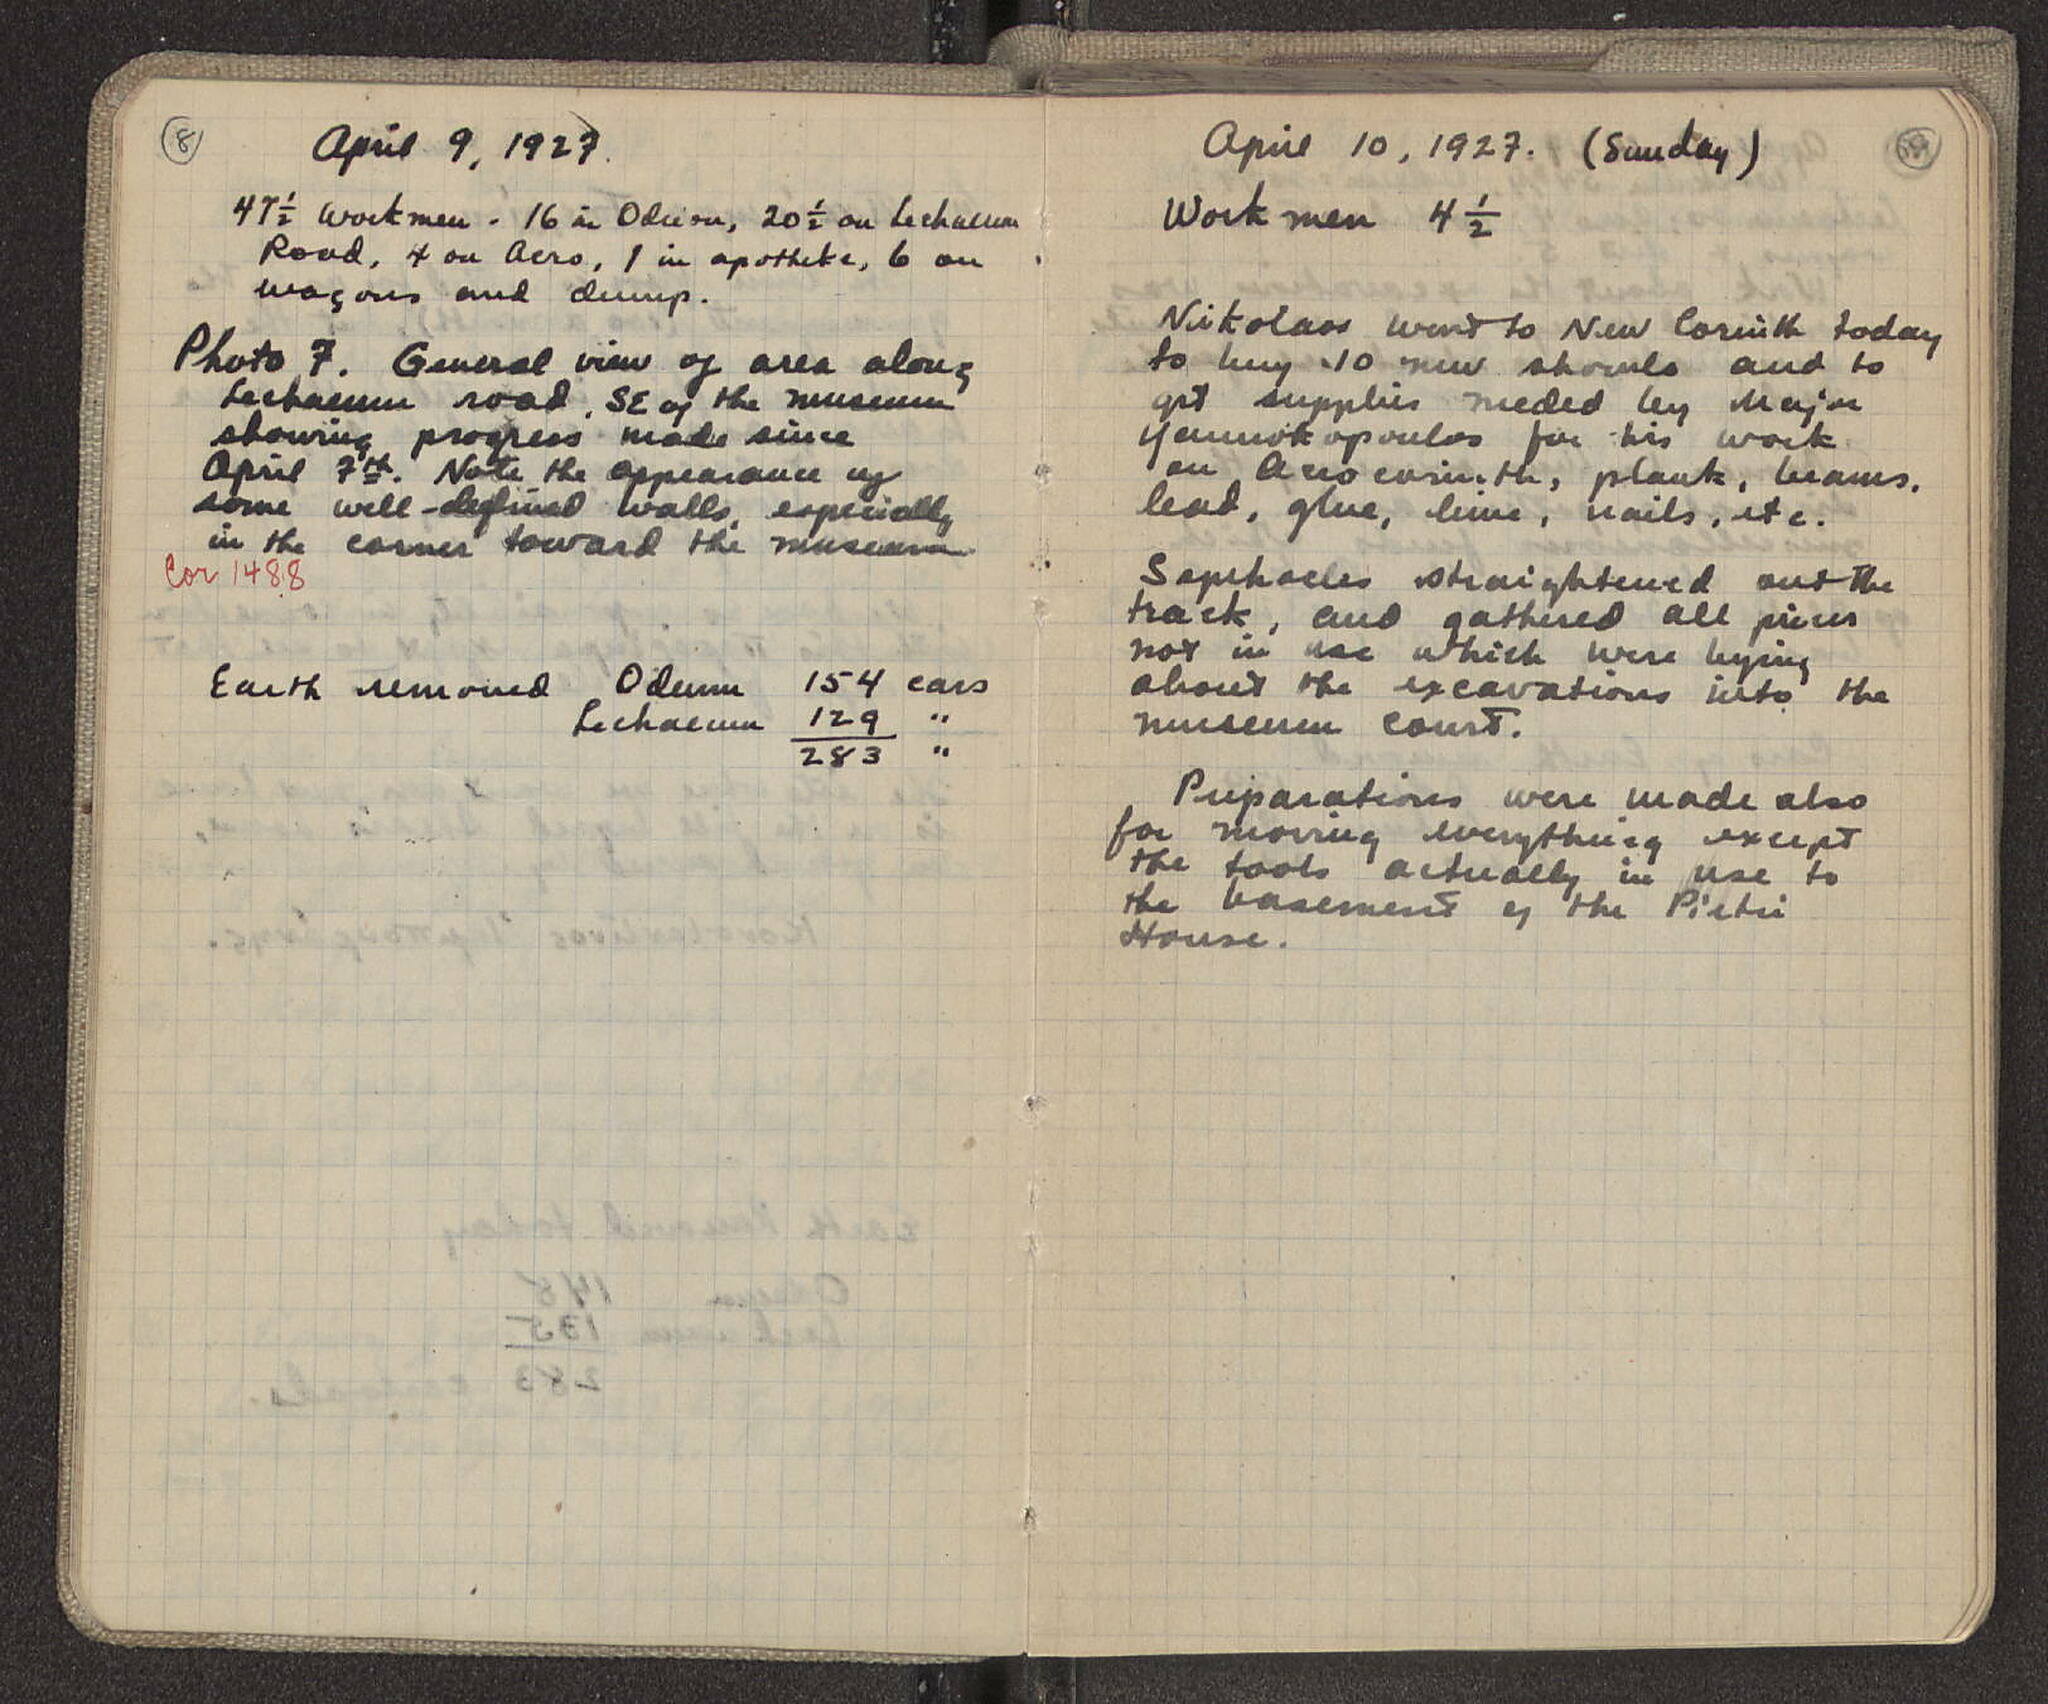 8
April 9, 1927.
47½ Workmen - 16 in Odeion, 20½ on Lechaeum
Road, 4 on Acro, 1 in apotheke, 6 on
wagons and dump.
Photo 7. General view of area along
Lechaeum road, SE of the museum
showing progress made since
April 7th. Note the appearance of
some well-defined walls, especially
in the corner toward the museum.
Cor 1488
Earth removed Odeum 154 cars
Lechaeum 129 "
283 "
April 10, 1927. (Sunday)
Workmen 4½
Nikolaos went to New Corinth today
to buy 10 new shovels and to
get supplies needed by Major
Yannokopoulos for his work
on Acrocorinth, plank, beams,
lead, glue, lime, nails, etc.
Sophocles straightened out the
track, and gathered all pieces
not in use which were lying
about the excavations into the
museum court.
Preparations were made also
for moving everything except
the tools actually in use to
the basement of the Pietri
House.